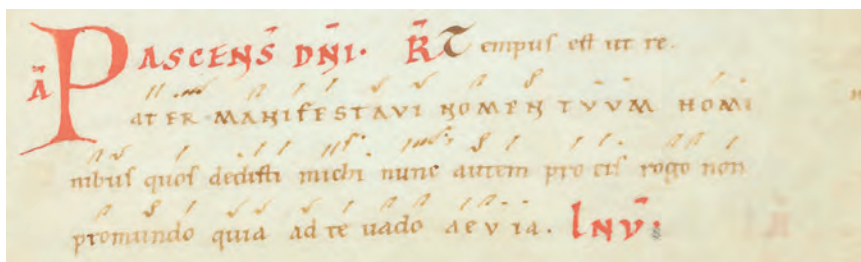 ASCENS̄ DN̄I. R̄ Tempuſ eſt ut re.
Ā PATER MANIFESTAVI NOMEN TVVM HOMI
nibuſ quoſ dediſti michi nunc autem pro eiſ rogo non
promundo quia ad te uado aevia. INV̄.